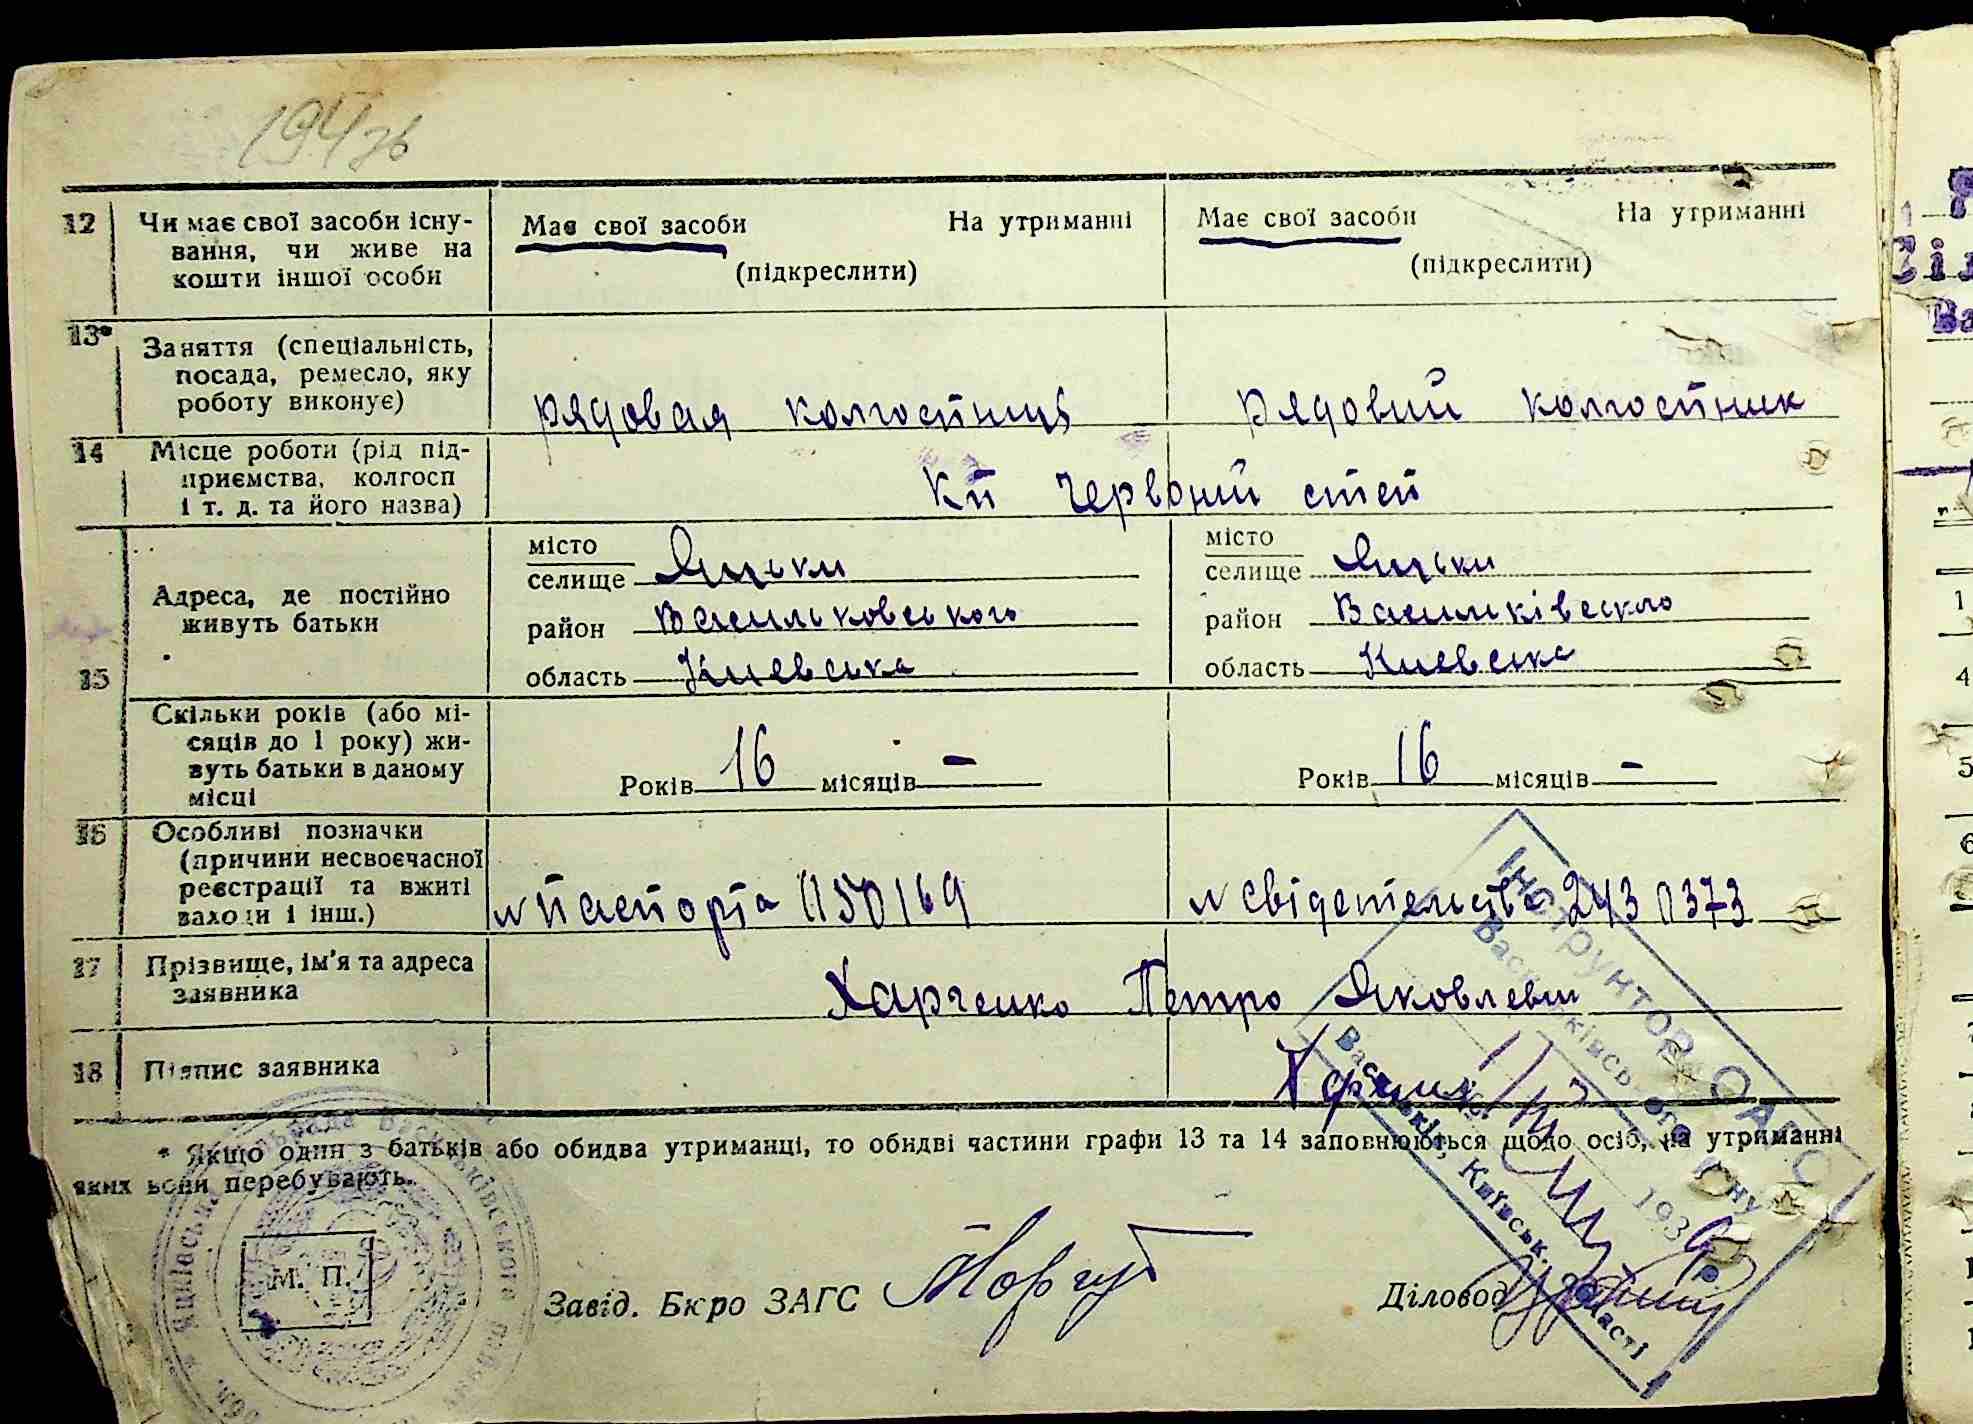 194зв
12 Чи має свої засоби існу-
вання, чи живе на
кошти іншої особи
Має свої засоби На утриманні
(підкреслити)
Має свої засоби На утриманні
(підкреслити)
13* Заняття (спеціальність,
посада, ремесло, яку
роботу виконує)
рядовая колгоспниця
рядовий колгоспник
14 Місце роботи (рід під-
приємства, колгосп
і т. д. та його назва)
Кп Червоний степ
15 Адреса, де постійно
живуть батьки
місто
селище Яцьки
район Васильковського
область Киевська
місто
селище Яцьки
район Васильківського
область Киевська
Скільки років (або мі-
сяців до 1 року) жи-
вуть батьки в даному
місці
Років 16 місяців –
Років 16 місяців –
16 Особливі позначки
(причини несвоєчасної
реєстрації та вжиті
заходи і інш.)
№ паспорта
№ свідетельства
17 Прізвище, ім'я та адреса
заявника
Харченко Петро Яковлевич
18 Підпис заявника
* Якщо один з батьків або обидва утриманці, то обидві частини графи 13 та 14 заповнюються щодо осіб, на утриманні
яких вони перебувають.
М. П.
Завід. Бюро ЗАГС
Діловод
Інструктор ОАГС
Васильківського
193
Васильків, Київськ. області